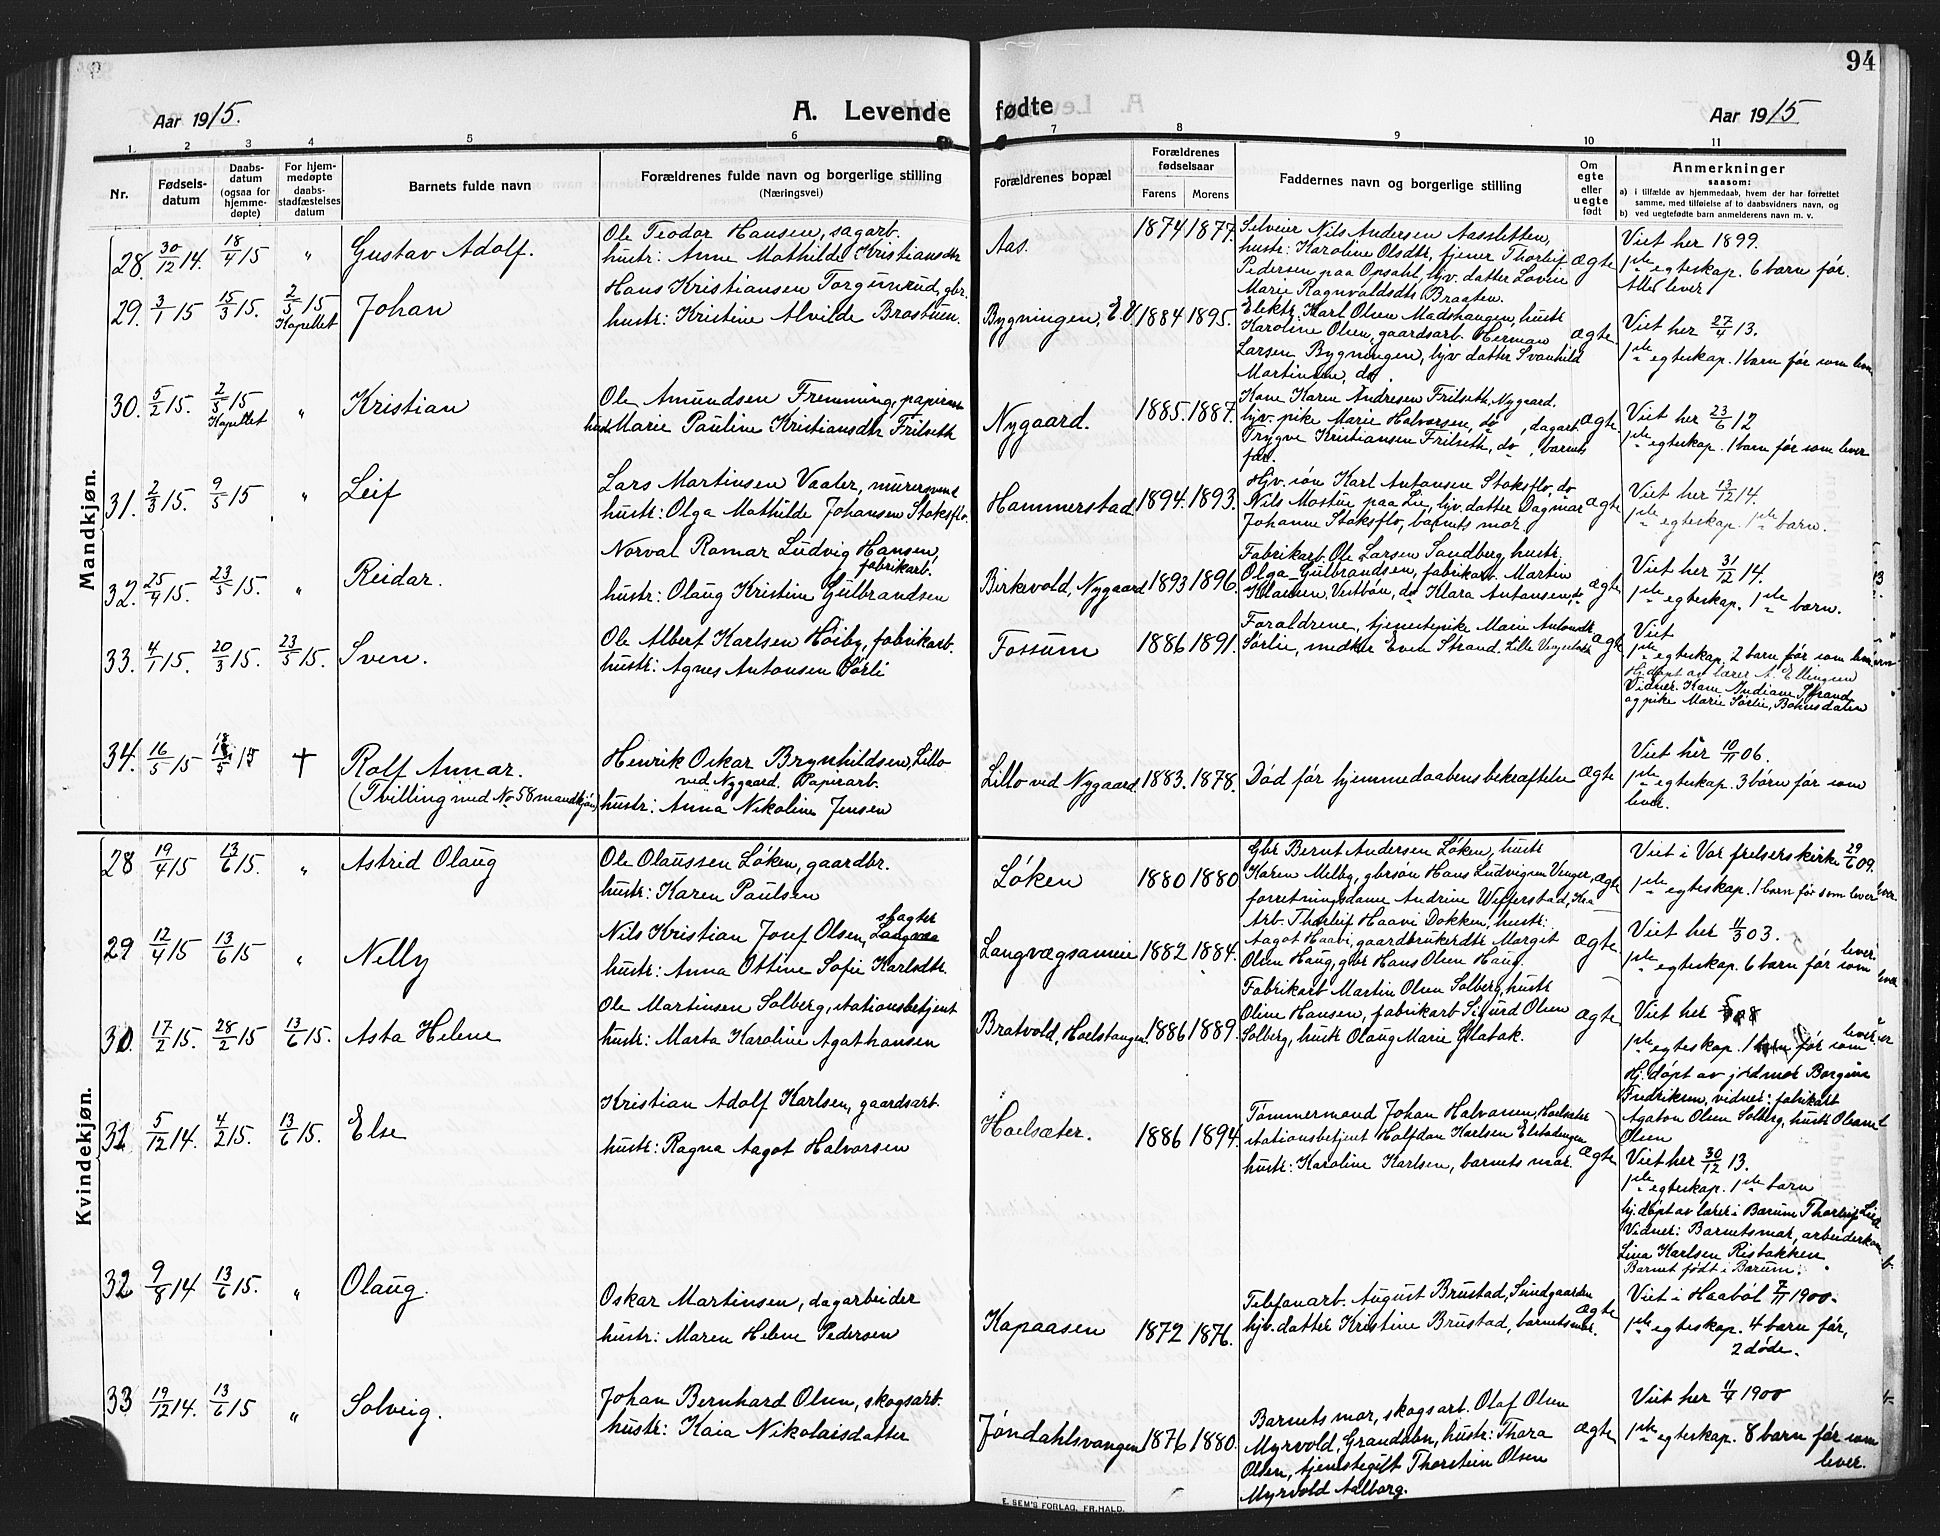 94
Aar 1915.
A. Levende fødte
Aar 1915
1. 2 3 4 5 6 7 8 9 10 11
Nr.
Fødsels-
datum
Daabs-
datum
(ogsaa for
hjemme-
døpte)
For hjem-
medøpte
daabs-
stadfæstelses
datum
Barnets fulde navn
Forældrenes fulde navn og borgerlige stilling
(Næringsvei)
Forældrenes bopæl
Forældrenes
fødselsaar
Farens Morens
Faddernes navn og borgerlige stilling
Om
egte
eller
uegte
født
Anmerkninger
saasom:
a) i tilfælde av hjemmedaab, hvem der har forrettet
samme, med tilføielse af to daabsvidners navn, og
b) ved uegtefødte barn anmelderens navn m. v.
Mandkjøn.
28. 30/12 14. 18/4 15 " Gustav Adolf.
Ole Teodor Hansen, sagarb.
hustr: Anne Mathilde Kristiansdtr
Aas. 1874 1877.
Selveier Nils Andersen Aassletten,
hustr: Karoline Olsdtr, tjener Thorleif
Pedersen paa Opsahl, hjv. datter Lovise
Marie Ragnvaldsdtr Braaten.
ægte
Viet her 1899.
1ste egteskap. 6 barn før.
Alle lever
29. 3/1 15 15/3 15. 2/5 15 Kapellet Johan
Hans Kristiansen Torgunrud, gbr.
hustr: Kristine Alvilde Brostuen.
Bygningen, E.V. 1884 1895.
Elektr. Karl Olsen Madshaugen, hustr
Karoline Olsen, gaardsarb. Herman
Larsen, Bygningen, hjv datter Svanhild
Martinsen, do.
ægte
Viet her 27/4 13.
1ste egteskap. 1 barn før som lever
30. 5/2 15. 2/5 15 Kapellet " Kristian
Ole Amundsen Fremming, papirarb
hustr Marie Pauline Kristiansdtr Frilseth
Nygaard. 1885. 1887.
Kone Karen Andresen Frilseth, Nygaard.
hjv. pike Marie Halvorsen, do, dagarb.
Trygve Kristiansen Frilseth, do, barnets
far.
ægte
Viet her 23/6 12
1ste egteskap. 1 barn før som lever
31. 2/3 15. 9/5 15 " Leif
Lars Martinsen Vaaler, murersvend
hustr: Olga Mathilde Johansen Stoksflo.
Hammerstad 1894. 1893.
Hjv. søn Karl Antonsen Stoksflo, do
Nils Mostue paa Lie, hjv. datter Dagmar
Johanne Stoksflo, barnets mor
ægte
Viet her 13/12 14.
1ste egteskap. 1ste barn.
32. 25/4 15. 23/5 15. " Reidar.
Norval Romar Ludvig Hansen,
fabrikarb.
hustr: Olaug Kristine Gulbrandsen
Birkvold, Nygaard 1893 1896.
Fabrikarb. Ole Larsen Sandberg, hustr.
Olga Gulbrandsen, fabrikarb. Martin
Klausen, Vestbøn, do Klara Antonsen, do
ægte
Viet her 31/12 14.
1ste egteskap. 1ste barn.
33. 4/1 15. 20/3 15. 23/5 15. Sven.
Ole Albert Karlsen Høiby, fabrikarb.
hustr: Agnes Antonsen Sørli
Fossum 1886 1891.
Forældrene, tjenestepike Marie Antonsdtr
Sørlie, Even Strand.
ægte
Viet
1ste egteskap. 2 barn før som lever
Hj.døpt av lærer A. Ellingsen
Vidner: Kone Indiane Strand
og pike Marie Sørlie, Bohusdalen
34. 16/5 15 18/5 15 + Rolf Annar.
(Tvilling med No 58 mandkjøn)
Henrik Oskar Brynhildsen, Lillo
ved Nygaard. Papirarb.
hustr: Anna Nikoline Jensen
Lillo ved Nygaard 1883. 1878.
Død før hjemmedaabens bekræftelse
ægte
Viet her 10/11 06.
1ste egteskap. 3 barn før som
lever.
Kvindekjøn.
28 19/4 15 13/6 15. " Astrid Olaug
Ole Olaussen Løken, gaardbr.
hustr: Karen Paulsen
Løken 1880 1880
Gbr Bernt Andersen Løken, hustr
Karen Melby, gbrsøn Hans Ludvigsen Venger,
forretningsdame Andrine Wefferstad, Kra
ægte
Viet i Vor frelsers kirke 29/6 09.
1ste egteskap. 1 barn før som lever
29 12/4 15 13/6 15 " Nelly
Nils Kristian Josef Olsen, slagter
hustr: Anna Ottine Sofie Karlsdtr.
Langvægsameie 1882 1884.
Arb. Thorleif Haavi Dokken, hustr:
Aagot Haavi, gaardbrukerdtr Margit
Olsen Haug, gbr Hans Olsen Haug.
ægte
Viet her 11/3 03.
1ste egteskap. 6 barn før som lever.
30. 17/2 15. 28/2 15 13/6 15. Asta Helene
Ole Martinsen Solberg, stationsbetjent
hustr: Marta Karoline Agathansen
Bratvold, Hoelstangen. 1886 1889.
Fabrikarb Martin Olsen Solberg, hustr
Oline Hansen, fabrikarb Sigurd Olsen
Solberg, hustr Olaug Marie Slatak.
ægte
Viet her
1ste egteskap. 1 barn før som lever.
Hj.døpt av jordmor Borgine
Fredriksen, vidner: fabrikarb
Agaton Olsen Solberg, hustr
Olsen
31 5/12 14. 4/2 15. 13/6 15. Else
Kristian Adolf Karlsen, gaardsarb.
hustr: Ragna Aagot Halvorsen
Hoelsæter. 1886 1894.
Tømmermand Johan Halvorsen, Hoelsæter
stationsbetjent Halfdan Karlsen Elstadengen
hustr: Karoline Karlsen, barnets mor.
ægte
Viet her 30/12 13.
1ste egteskap. 1ste barn
hj.døpt av lærer i Bærum Thorleif Lied
Vidner: Barnets mor, arbeiderkone
Lina Karlsen Risbakken
Barnet født i Bærum.
32 9/8 14 13/6 15. " Olaug.
Oskar Martinsen, dagarbeider
hustr: Maren Helene Pedersen
Kapaasen 1872 1876.
Telefonarb. August Brustad, Sundgaarden
hjv. datter Kristine Brustad, barnets mor.
ægte
Viet i Haabøl 7/11 1900.
1ste egteskap. 4 barn før,
2 døde.
33 19/12 14. 13/6 15 " Solveig.
Johan Bernhard Olsen, skogsarb.
hustr: Kaia Nikolaisdatter
Jøndahlsvangen 1876 1880.
Barnets mor, skogsarb. Olaf Olsen
Myrvold, Grandalen, hustr: Thora
Olsen, tjenestegift Thorstein Olsen
Myrvold Aalborg.
ægte
Viet her 11/4 1900
1ste egteskap. 8 barn før som
lever.
E. SEM'S FORLAG, FR.HALD.